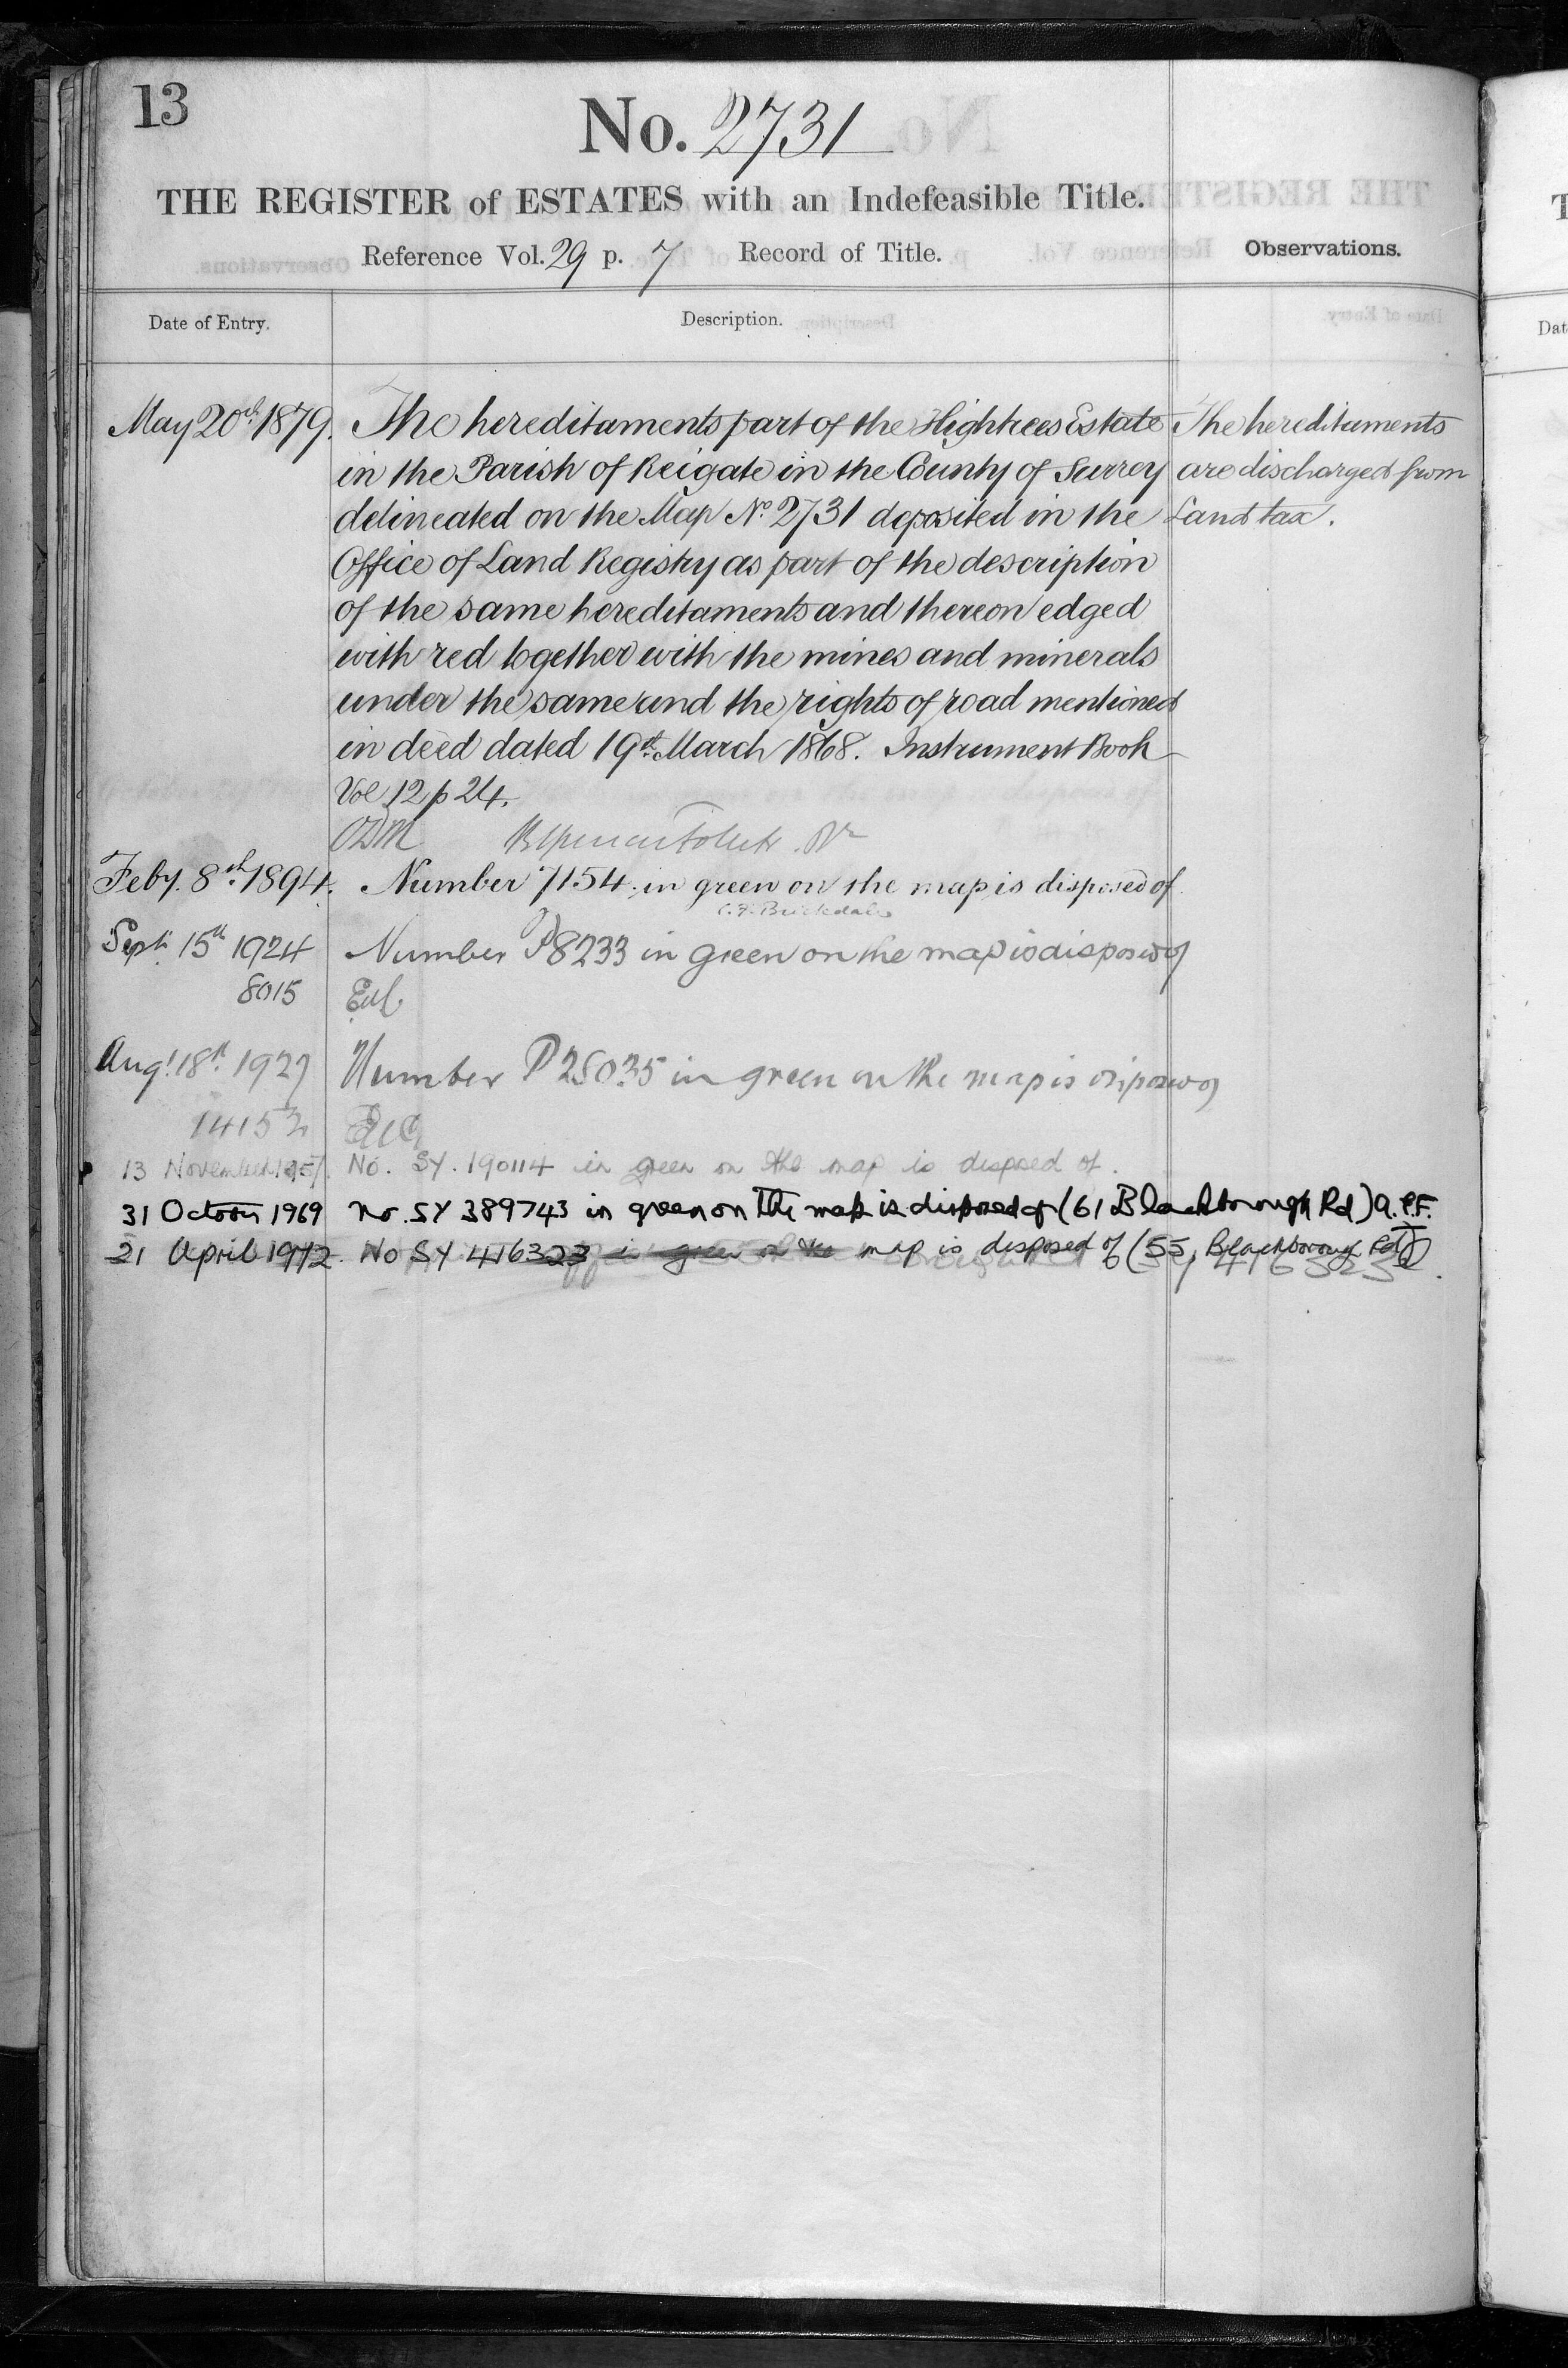 13
No. 2731
THE REGISTER of ESTATES with an Indefeasible Title.
Reference Vol. 29 p. 7 Record of Title.
Observations.
Date of Entry.
Description.
May 20th 1879. The hereditaments part of the Hightrees Estate
in the Parish of Reigate in the County of Surrey
delineated on the Map No. 2731 deposited in the
Office of Land Registry as part of the description
of the same hereditaments and thereon edged
with red together with the mines and minerals
under the same and the rights of road mentioned
in deed dated 19th March 1868. Instrument Book
Vol 12 p 24.
The hereditaments
are discharged from
Land tax.
Feby. 8th 1894. Number 7154 in green on the map is disposed of
C. F. Brickdale
Sept. 15th 1924 Number P8233 in green on the map is disposed of
8015
Augt 18th 1927 Number P25035 in green on the map is disposed of
14152
13 November 1957. No. SY. 190114 in green on the map is disposed of.
31 October 1969 No. SY 389743 in green on the map is disposed of (61 Blackborough Rd) A.P.F.
21 April 1972. No SY 416323 in green on the map is disposed of (55, Blackborough Rd)
Dat